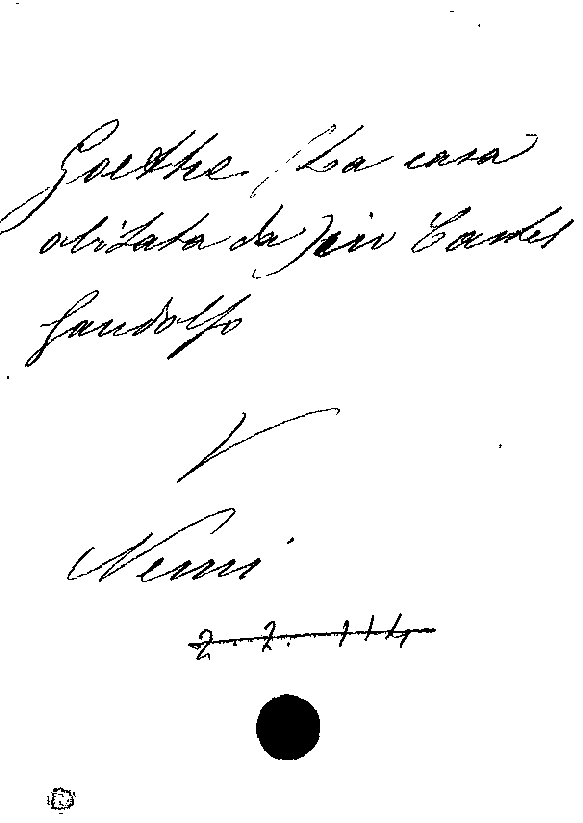 Goethe. (La casa
abitata da) in Castel
Gandolfo
V
Nemi
2. 2. 114